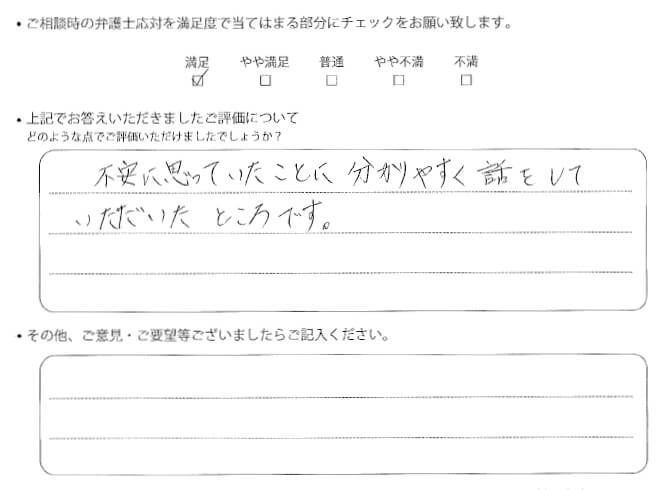 ・ご相談時の弁護士応対を満足度で当てはまる部分にチェックをお願い致します。
満足 やや満足 普通 やや不満 不満
☑ □ □ □ □
・上記でお答えいただきましたご評価について
どのような点でご評価いただけましたでしょうか？
不安に思っていたことに 分かりやすく 話をして
いただいた ところです。
・その他、ご意見・ご要望等ございましたらご記入ください。